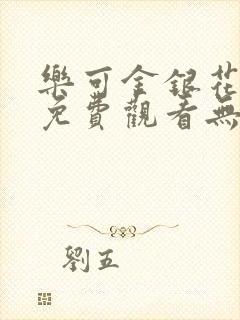 樂可金銀花
免費觀看無
劉五